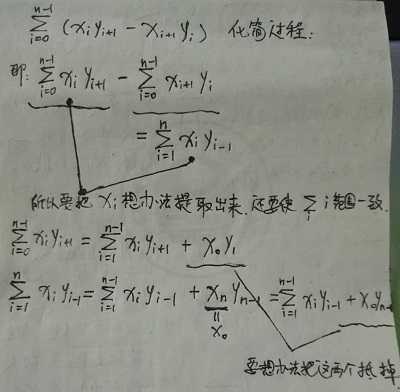 ∑_{i=0}^{n-1} (x_i y_{i+1} - x_{i+1} y_i) 化简过程:
即: ∑_{i=0}^{n-1} x_i y_{i+1} - ∑_{i=0}^{n-1} x_{i+1} y_i
= ∑_{i=1}^{n} x_i y_{i-1}
所以要把 x_i 想办法提取出来. 还要使 ∑_i i范围一致.
∑_{i=0}^{n-1} x_i y_{i+1} = ∑_{i=1}^{n-1} x_i y_{i+1} + x_0 y_1
∑_{i=1}^{n} x_i y_{i-1} = ∑_{i=1}^{n-1} x_i y_{i-1} + x_n y_{n-1} = ∑_{i=1}^{n-1} x_i y_{i-1} + x_0 y_{n-1}
=
x_0
要想办法把这两个抵掉